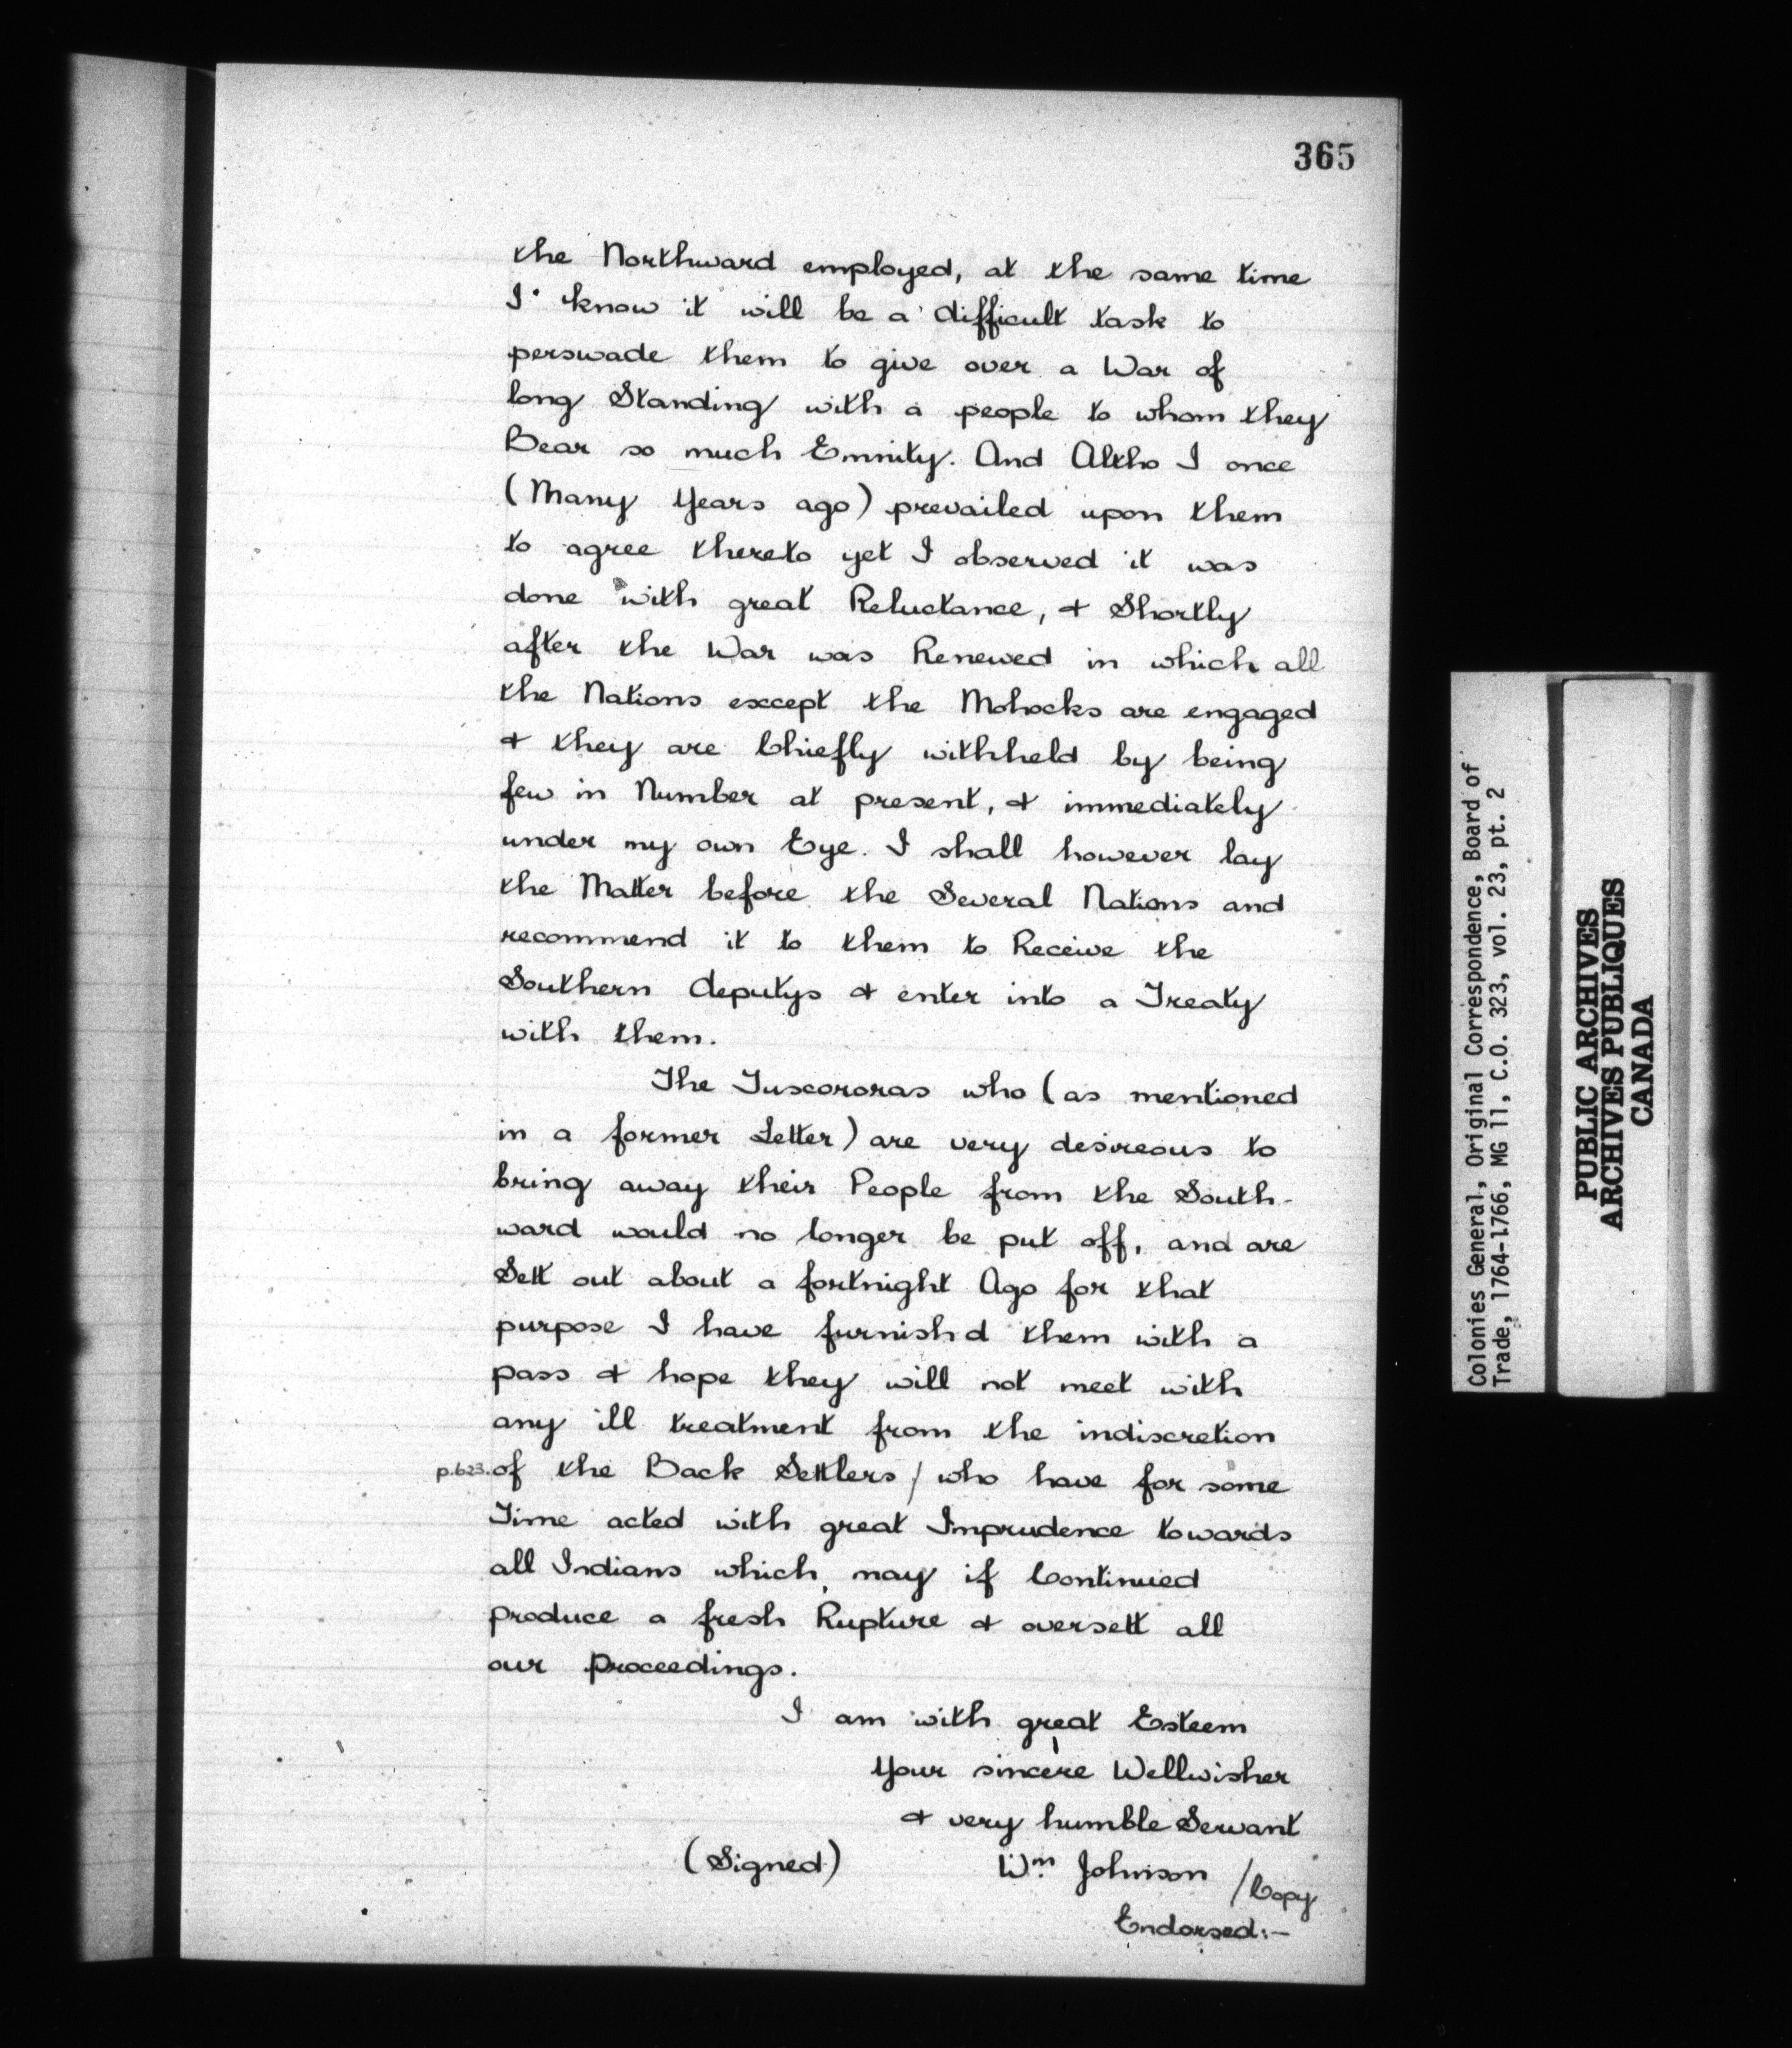 365
the Northward employed, at the same time
I know it will be a difficult task to
perswade them to give over a War of
long Standing with a people to whom they
Bear so much Emnity. And Altho I once
(Many Years ago) prevailed upon them
to agree thereto yet I observed it was
done with great Reluctance, & Shortly
after the War was Renewed in which all
the Nations except the Mohocks are engaged
& they are Chiefly withheld by being
few in Number at present, & immediately
under my own Eye. I shall however lay
the Matter before the Several Nations and
recommend it to them to Receive the
Southern deputys & enter into a Treaty
with them.
The Tuscororas who (as mentioned
in a former Letter) are very desireous to
bring away their People from the South-
ward would no longer be put off, and are
Sett out about a fortnight Ago for that
purpose I have furnishd them with a
pass & hope they will not meet with
any ill treatment from the indiscretion
p.623. of the Back Settlers / who have for some
Time acted with great Imprudence towards
all Indians which may if Continued
produce a fresh Rupture & oversett all
our Proceedings.
I am with great Esteem
Your sincere Wellwisher
& very humble Servant
(Signed) Wm. Johnson /Copy
Endorsed:-
Colonies General, Original Correspondence, Board of
Trade, 1764-1766, MG 11, C.O. 323, vol. 23, pt. 2
PUBLIC ARCHIVES
ARCHIVES PUBLIQUES
CANADA